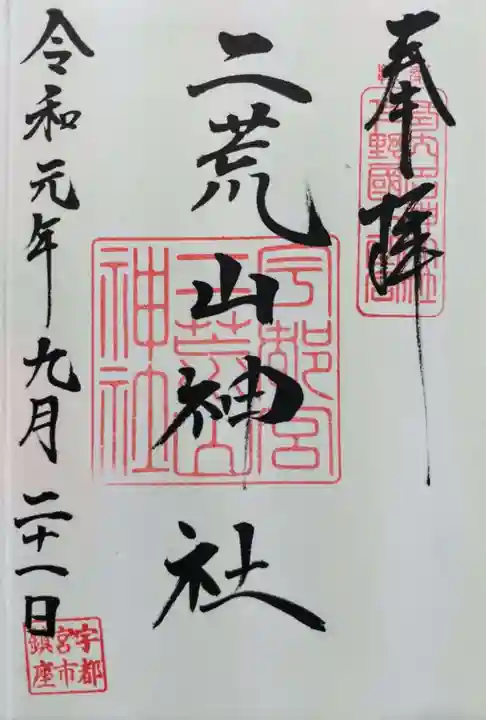 奉拝
二荒山神社
宇都宮
二荒山
神社
令和元年九月二十一日
宇都
宮市
鎮座